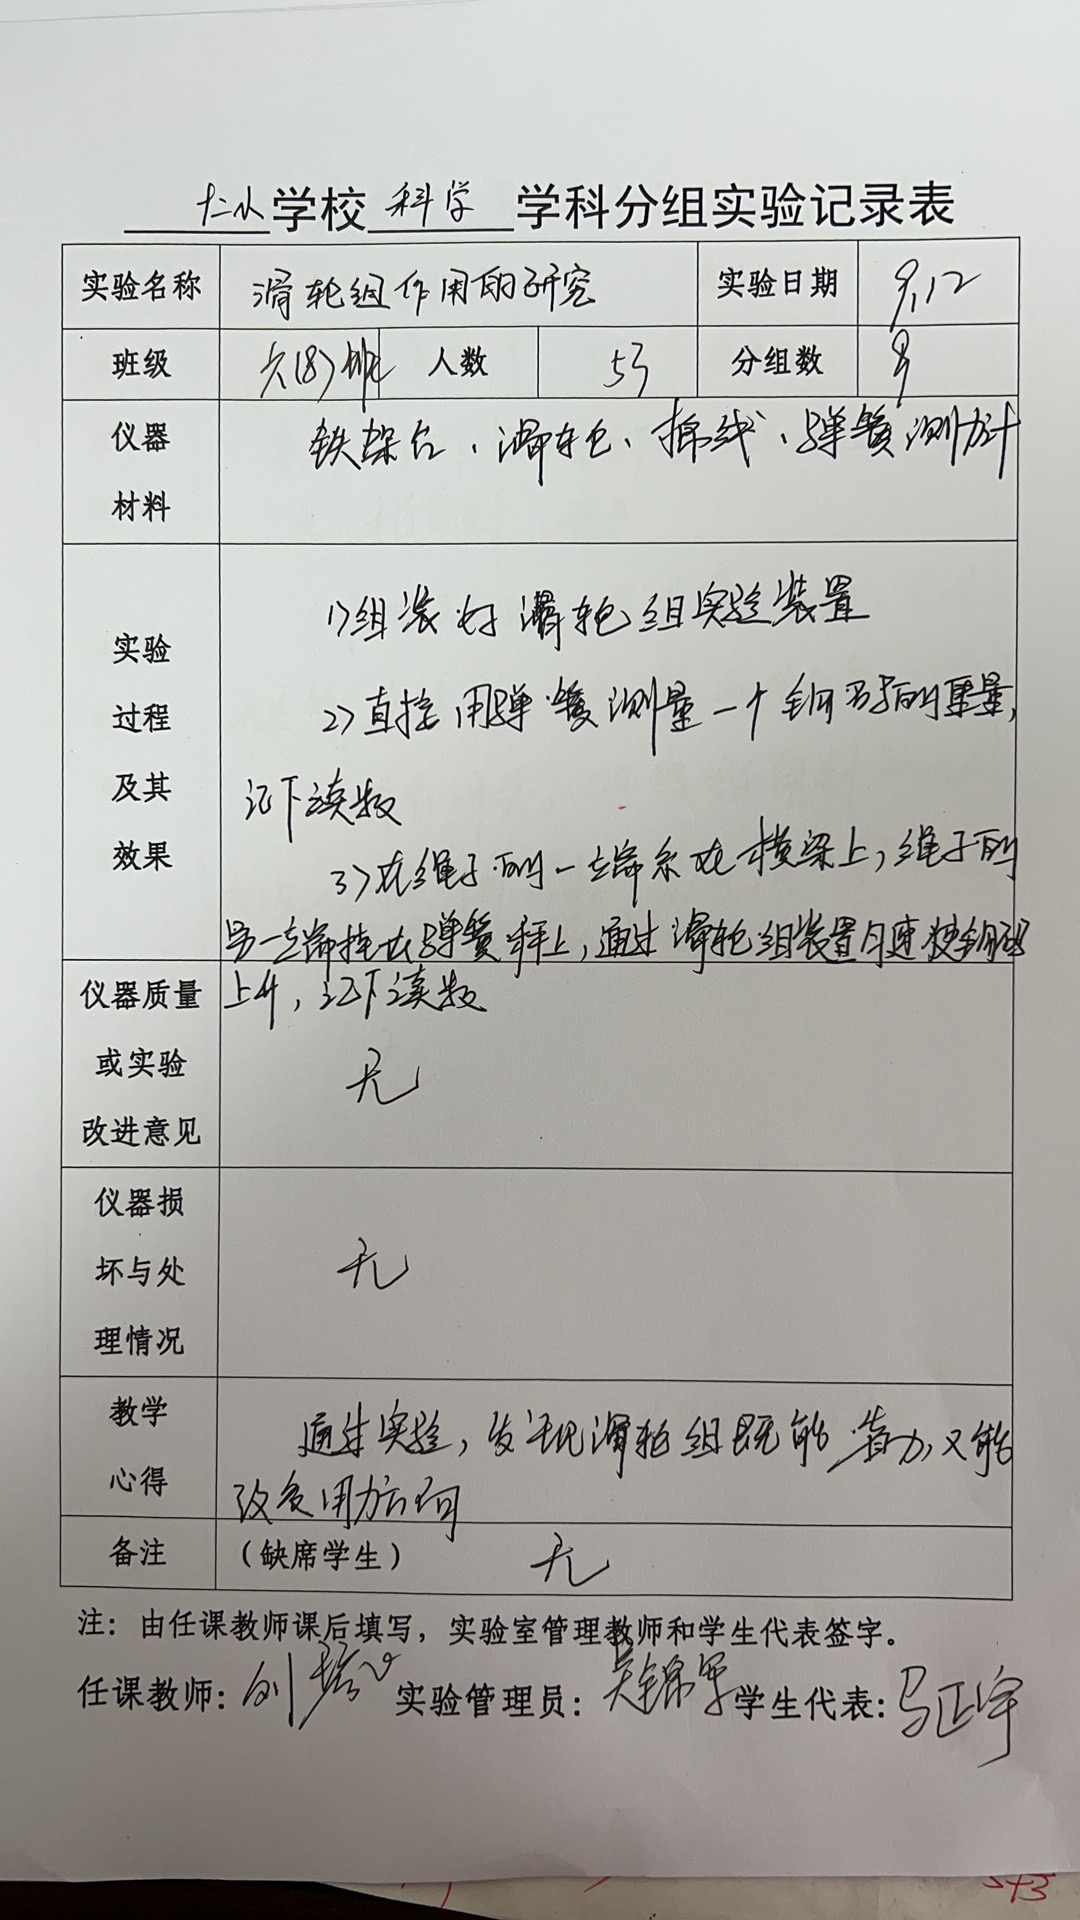 学校 科学 学科分组实验记录表
实验名称 滑轮组作用的研究 实验日期 9.12
班级 六(8)班 人数 53 分组数 9
仪器 铁架台、滑轮、棉线、弹簧测力计
材料
1)组装好滑轮组实验装置
实验
2)直接用弹簧测量一个钩码的重量,
过程
及其 记下读数
效果 3)在绳子的一端系在横梁上,绳子的
另一端挂在弹簧秤上,通过滑轮组装置匀速使钩码
仪器质量 上升,记下读数
或实验 无
改进意见
仪器损
坏与处 无
理情况
教学 通过实验,发现滑轮组既能省力,又能
心得 改变用力方向
备注 (缺席学生) 无
注:由任课教师课后填写,实验室管理教师和学生代表签字。
任课教师:刘 实验管理员:吴锦军 学生代表:马正宇